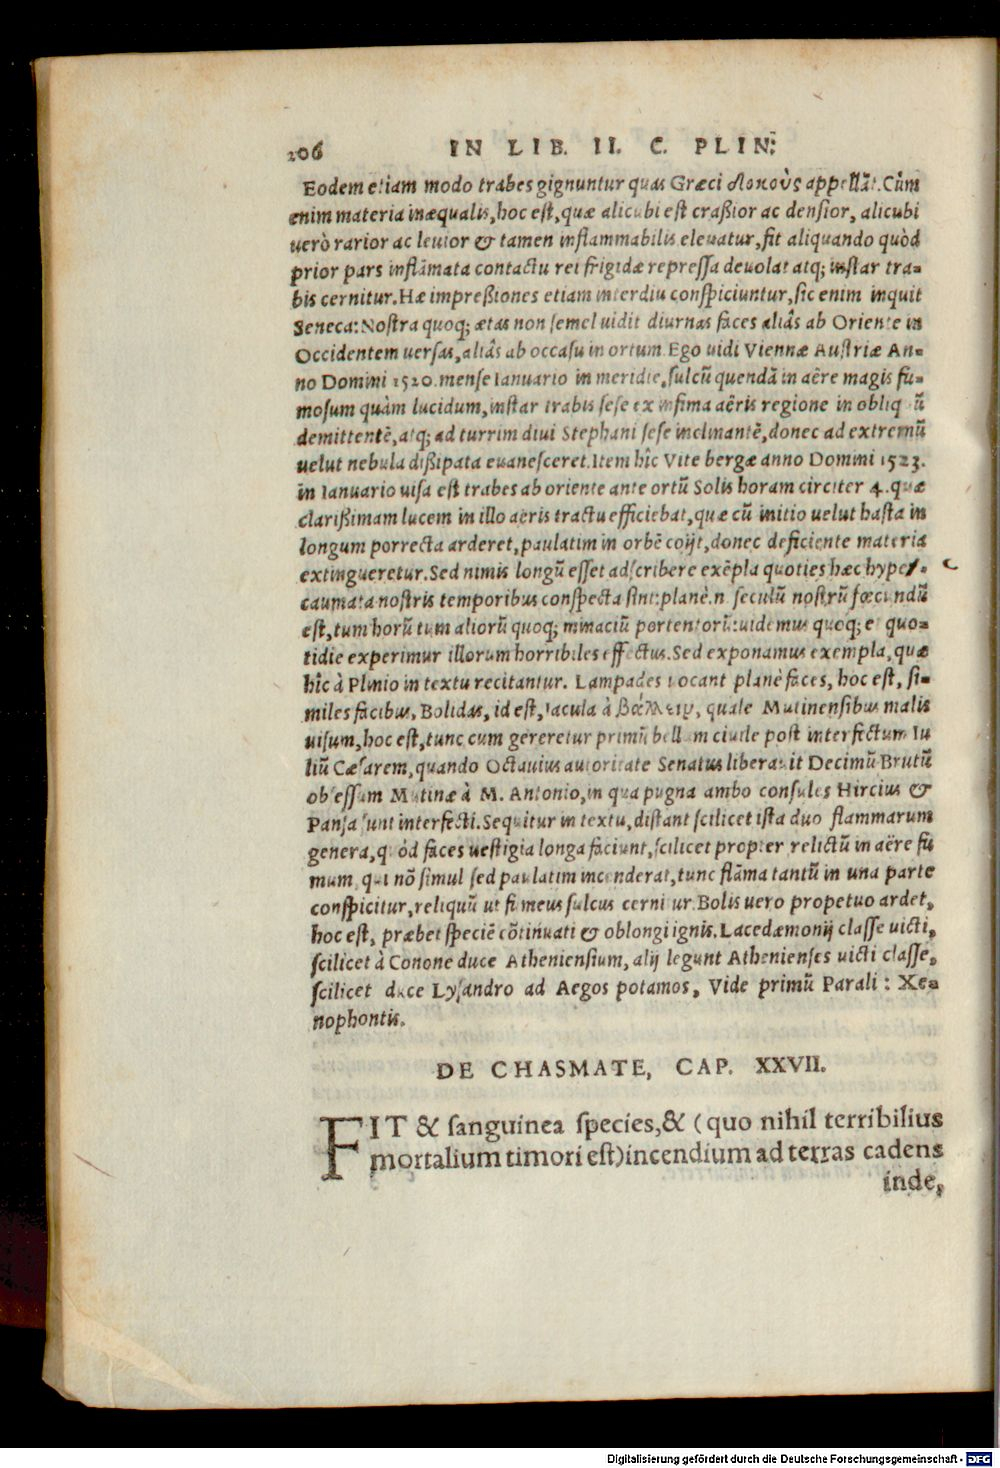 106 IN LIB. II. C. PLIN:
Eodem etiam modo trabes gignuntur quas Græci δοκοὺς appellāt. Cùm
enim materia inæqualis, hoc est, quæ alicubi est craßior ac densior, alicubi
uerò rarior ac leuior & tamen inflammabilis eleuatur, fit aliquando quòd
prior pars inflāmata contactu rei frigidæ repressa deuolat atq; instar tra-
bis cernitur. Hæ impreßiones etiam interdiu conspiciuntur, sic enim inquit
Seneca: Nostra quoq; ætas non semel uidit diurnas faces aliâs ab Oriente in
Occidentem uersas, aliâs ab occasu in ortum. Ego uidi Viennæ Austriæ An-
no Domini 1520. mense Ianuario in meridie, sulcū quendā in aëre magis fu-
mosum quàm lucidum, instar trabis sese ex infima aëris regione in obliquū
demittentē, atq; ad turrim diui Stephani sese inclinantē, donec ad extremū
uelut nebula dißipata euanesceret. Item hîc Vite bergæ anno Domini 1523.
in Ianuario uisa est trabes ab oriente ante ortū Solis horam circiter 4. quæ
clarißimam lucem in illo aëris tractu efficiebat, quæ cū initio uelut hasta in
longum porrecta arderet, paulatim in orbē coijt, donec deficiente materia
extingueretur. Sed nimis longū esset adscribere exēpla quoties hæc hypec-
caumata nostris temporibus conspecta sint: planè.n seculū nostrū fœcundū
est, tum horū tum aliorū quoq; minaciū portentorū: uidemus quoq; et quo-
tidie experimur illorum horribiles effectus. Sed exponamus exempla, quæ
hîc à Plinio in textu recitantur. Lampades uocant planè faces, hoc est, si-
miles facibus, Bolidas, id est, Iacula à βάλλειν, quale Mutinensibus malis
uisum, hoc est, tunc cum gereretur primū bellum ciuile post interfectum Iu
liū Cæsarem, quando Octauius autoritate Senatus liberauit Decimū Brutū
obsessum Mutinæ à M. Antonio, in qua pugna ambo consules Hircius &
Pansa sunt interfecti. Sequitur in textu, distant scilicet ista duo flammarum
genera, quòd faces uestigia longa faciunt, scilicet propter relictū in aëre fu
mum qui nō simul sed paulatim incenderat, tunc flāma tantū in una parte
conspicitur, reliquū ut fumeus sulcus cernitur. Bolis uero propetuo ardet,
hoc est, præbet speciē cōtinuati & oblongi ignis. Lacedæmonij classe uicti,
scilicet à Conone duce Atheniensium, alij legunt Athenienses uicti classe,
scilicet duce Lysandro ad Aegos potamos, Vide primū Parali: Xe-
nophontis.
DE CHASMATE, CAP. XXVII.
FIT & sanguinea species, & (quo nihil terribilius
mortalium timori est) incendium ad terras cadens
inde,
Digitalisierung gefördert durch die Deutsche Forschungsgemeinschaft - DFG